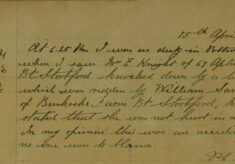 15th April
At 6.25 PM I was on duty in
when I saw Mrs E. Knight of 67 Apton
Bt Stortford knocked down by a
which was ridden by William
of Farm Bt Stortford,
stated that she was not hurt in
In my opinion this was an
no one was to blame